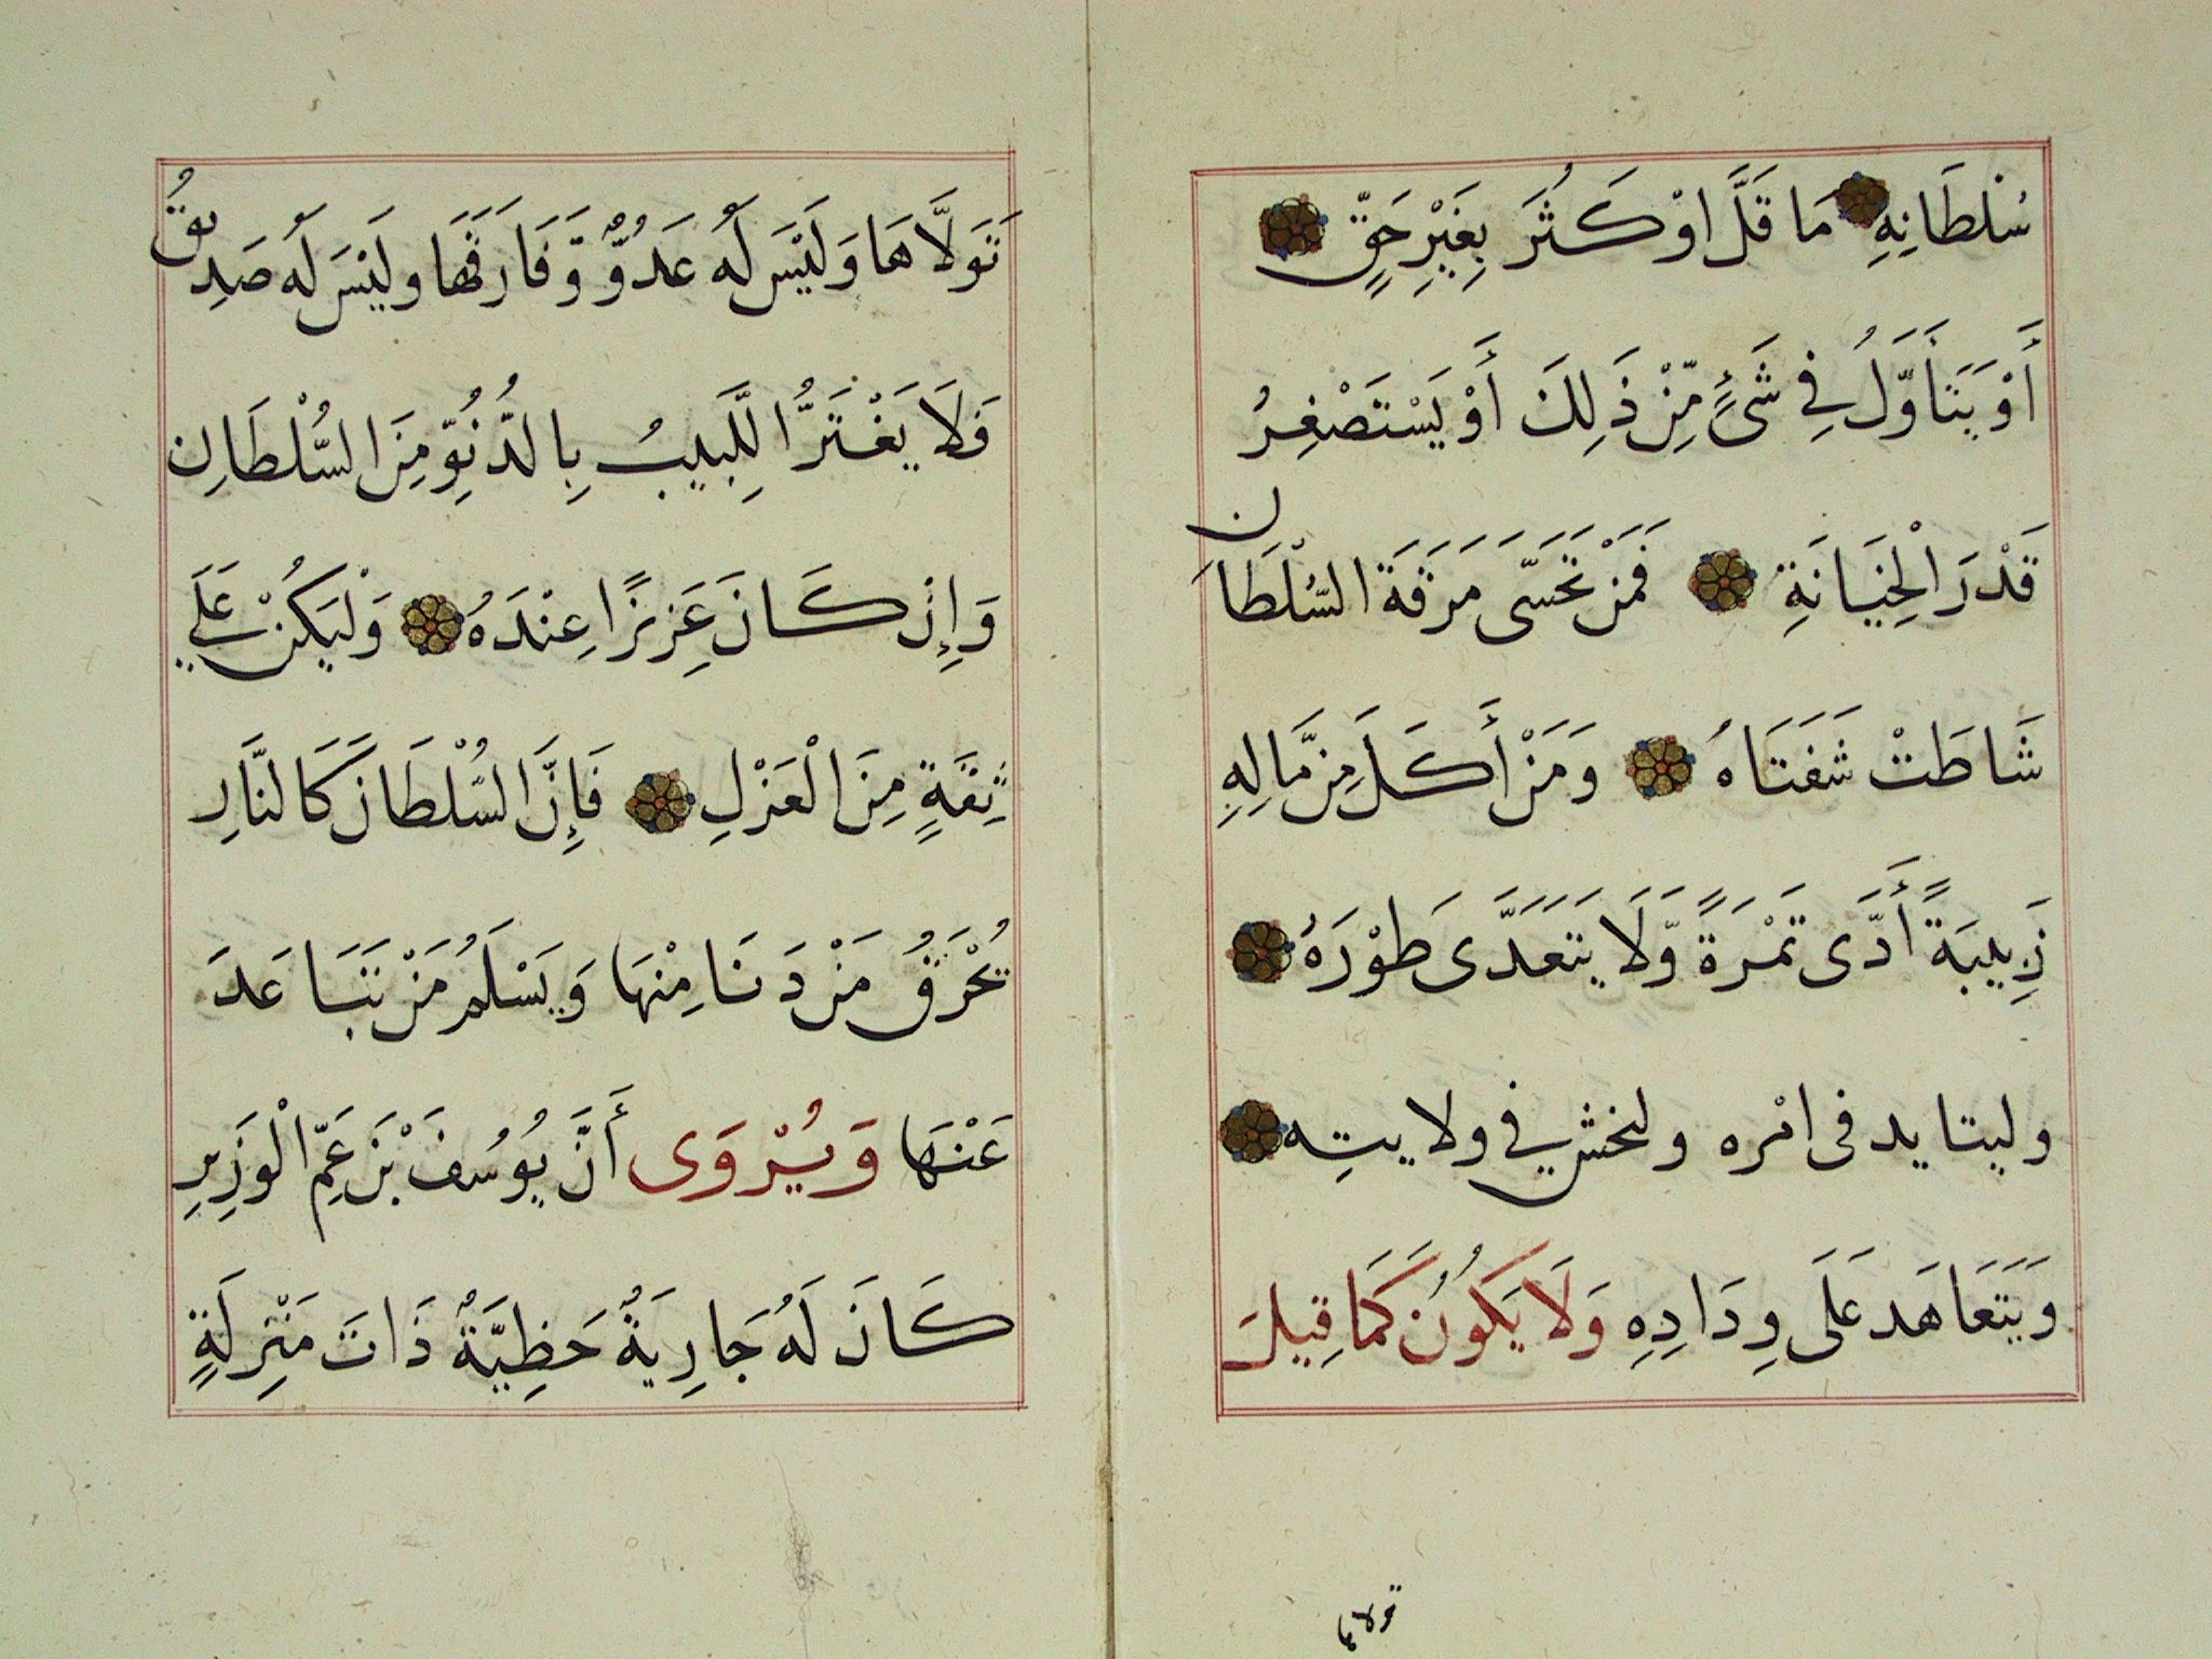 سُلْطَانِهِ مَا قَلَّ اوْ كَثُرَ بِغَيْرِ حَقٍّ
أَوْ يَتَأَوَّلُ فِي شَيْءٍ مِّنْ ذَلِكَ أَوْ يَسْتَصْغِرُ
قَدْرَ الْخِيَانَةِ فَمَنْ تَحَسَّى مَرَقَةَ السُّلْطَانِ
شَاطَتْ شَفَتَاهُ وَمَنْ أَكَلَ مِنْ مَّالِهِ
زَبِيبَةً أَدَّى تَمْرَةً وَّلَا يَتَعَدَّى طَوْرَهُ
وليتايد فى امْره ولخش في ولايتِه
وَيَتَعَاهَد عَلَى وِدَادِهِ وَلَا يَكُونُ كَمَا قِيلَ
تولاها
تَوَلَّاهَا وَلَيْسَ لَهُ عَدُوٌّ وَّفَارَقَهَا ولَيْسَ لَه صَدِيقُ
فَلَا يَغْتَرُّ اللَّبِيبُ بِالدُّنُوِّ مِنَ السُّلْطَانِ
وَإِنْ كَانَ عَزِيزًا عِنْدَهُ وَلْيَكُنْ عَلَي
ثِقَةٍ مِنَ الْعَزْلِ فَإِنَّ السُّلْطَانَ كَالنَّارِ
تُحْرَقُ مَنْ دَنَا مِنْهَا وَيَسْلَمُ مَنْ تَبَاعَدَ
عَنْهَا وَيُرْوَى أَنَّ يُوسُفَ بْنَ عَمِّ الْوَزِيرِ
كَانَ لَهُ جَارِيَةٌ حَظِيَّةٌ ذَاتَ مَنْزِلَةٍ